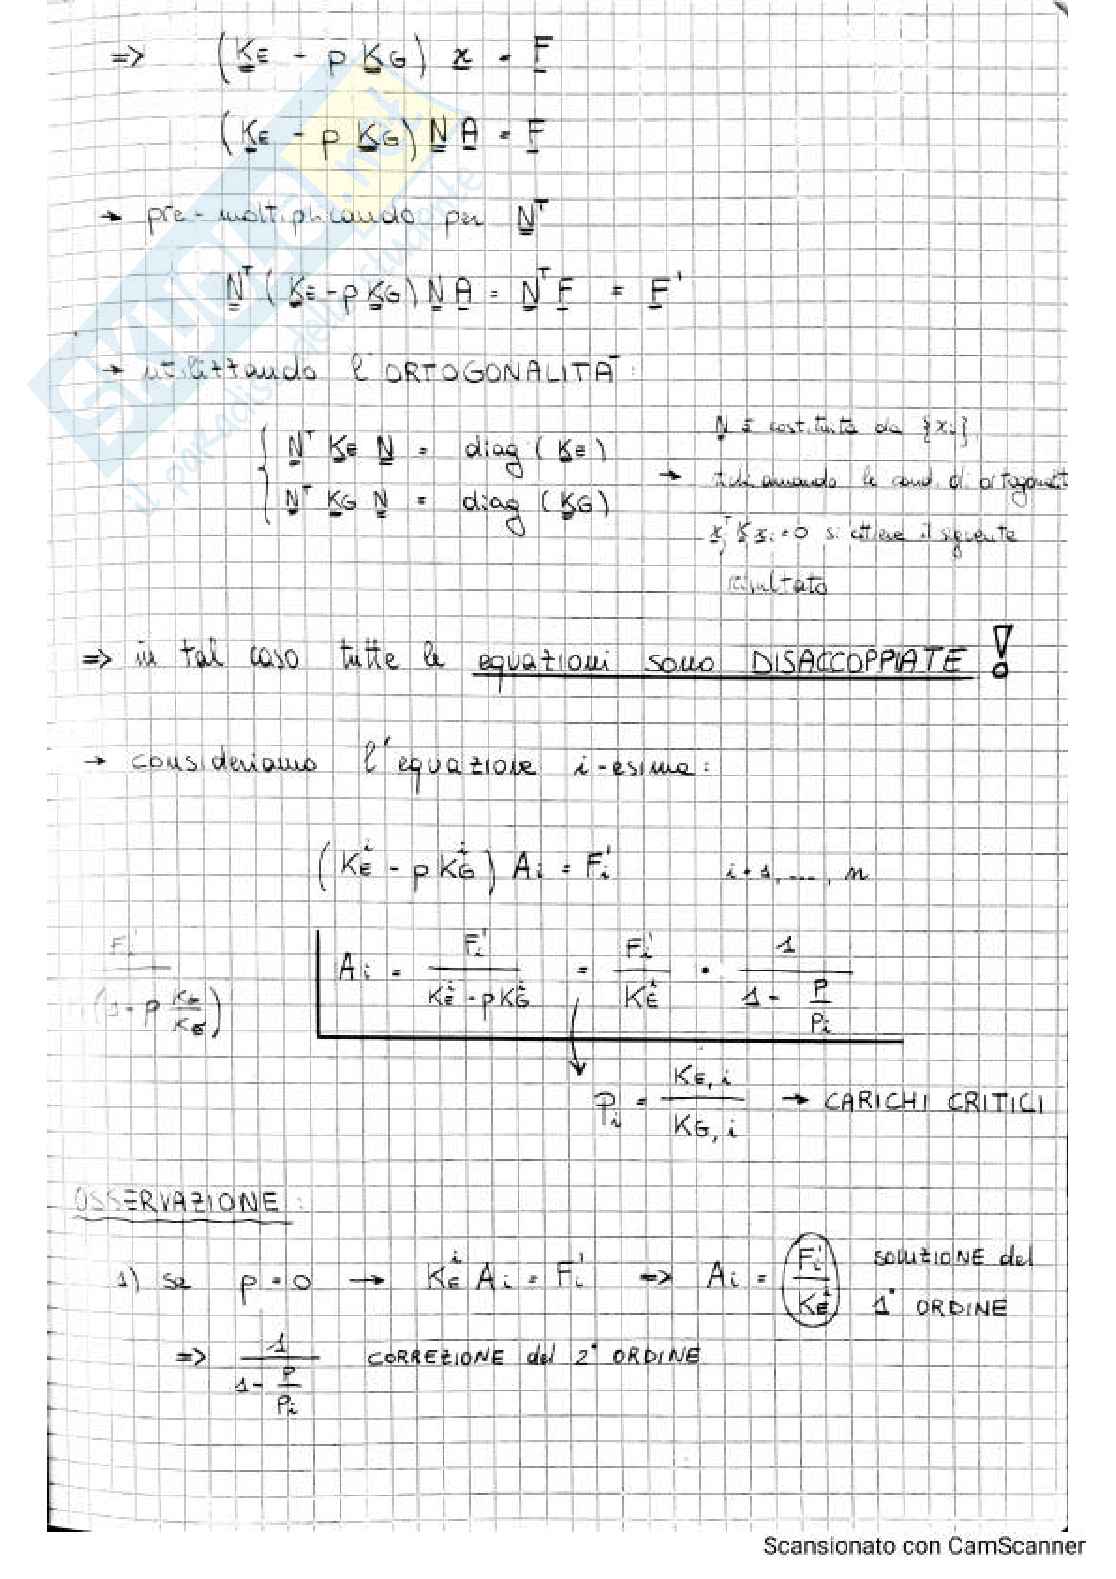 => (K̲E - p K̲G) x̲ = F̲
(K̲E - p K̲G) N̲ A̲ = F̲
→ pre-moltiplicando per N̲ᵀ
N̲ᵀ (K̲E - p K̲G) N̲ A̲ = N̲ᵀ F̲ = F̲'
→ utilizzando l'ORTOGONALITÀ:
{ N̲ᵀ K̲E N̲ = diag (K̲E)
N̲ᵀ K̲G N̲ = diag (K̲G)
N̲ è costituita da {xi}
→ richiamando le cond. di ortogonalit
si ottiene il seguente
risultato
=> in tal caso tutte le equazioni sono DISACCOPPIATE !
→ consideriamo l'equazione i-esima:
(KEⁱ - p KGⁱ) Ai = Fi' i=1, ..., n
Fi' / (1 - p KG/KE)
Ai = Fi' / (KEⁱ - p KGⁱ) = Fi' / KEⁱ · 1 / (1 - P/Pi)
Pi = KE,i / KG,i → CARICHI CRITICI
OSSERVAZIONE:
1) se p = 0 → KEⁱ Ai = Fi' => Ai = Fi' / KEⁱ SOLUZIONE del
1° ORDINE
=> 1 / (1 - P/Pi) CORREZIONE del 2° ORDINE
Scansionato con CamScanner
SKUOLA.net
il paradiso dello studente